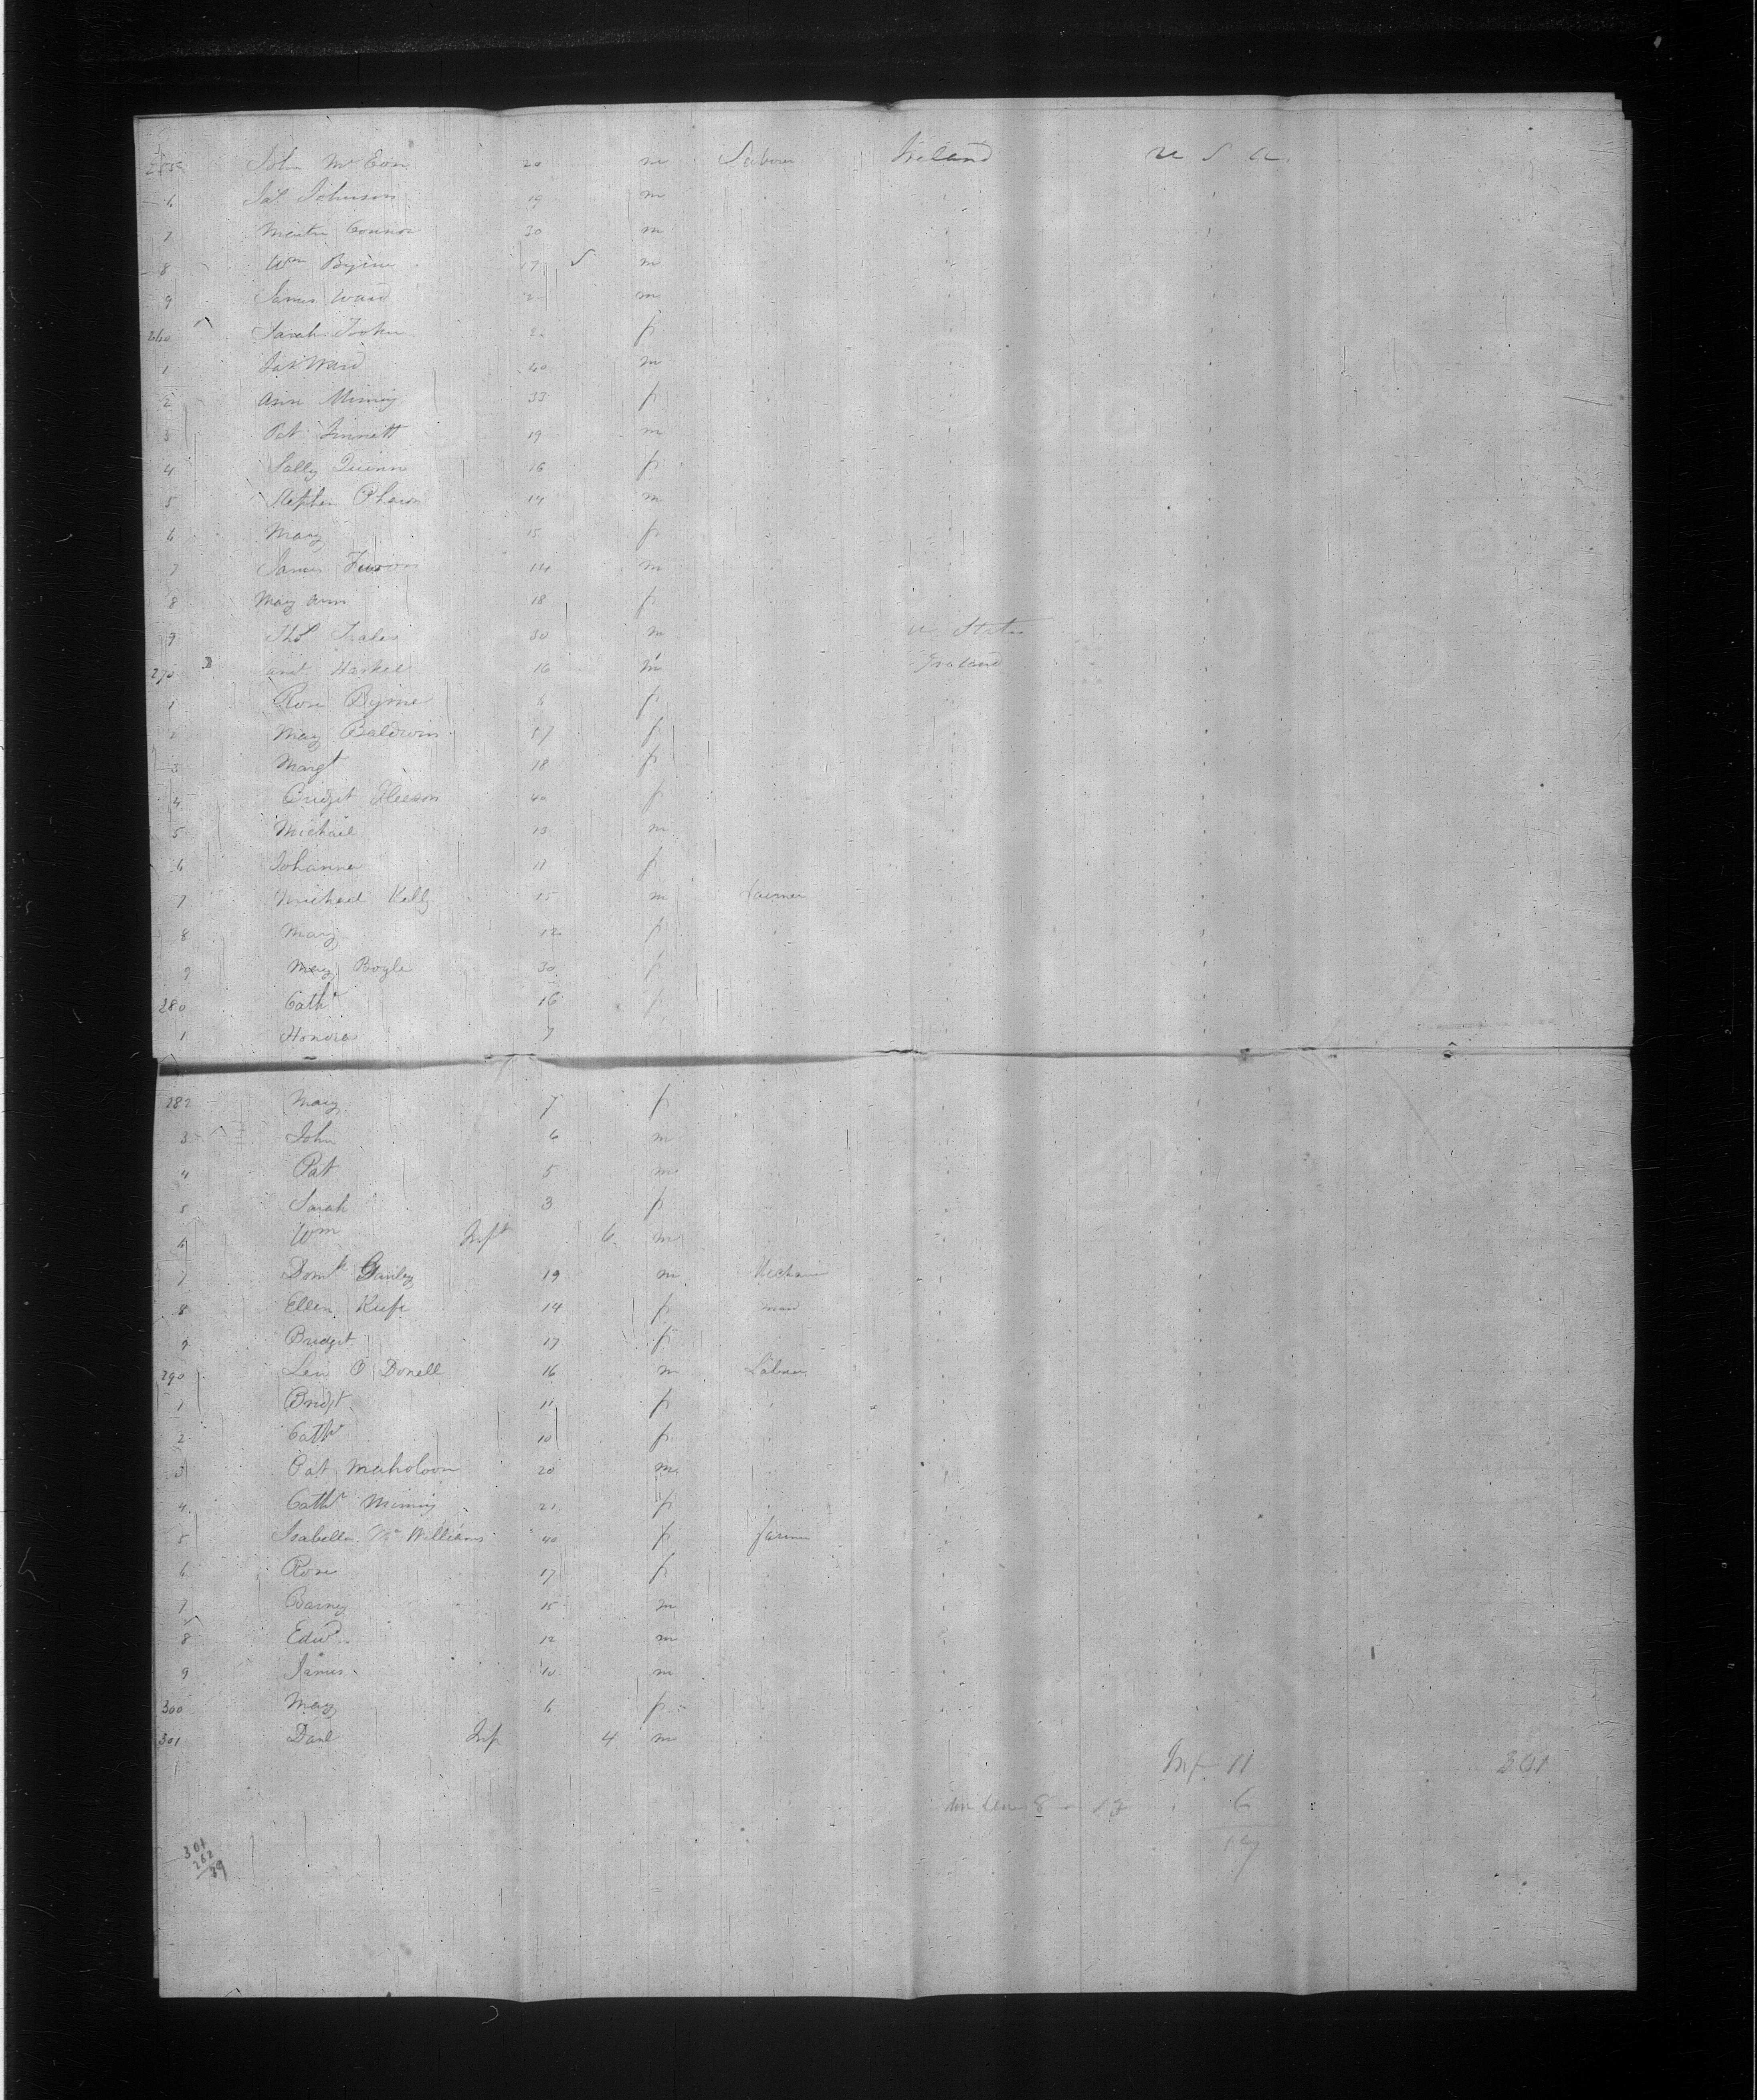 255 John McEvoy 20 m Laborer Ireland U S A
6 Jas. Johnson 19 m
7 Martin Connor 30 m
8 Wm Byrne 17 m
9 James Ward m
260 Sarah f
1 Jas Ward 40 m
2 Ann 33 f
3 Pat 19 m
4 Sally Quinn 16 f
5 Stephen 14 m
6 Mary 15 f
7 James 14 m
8 Mary Ann 18 f
9 Thos. 30 m U States
270 Haskel 16 m Ireland
1 Rose Byrne 6 f
2 Mary Baldwin 17 f
3 Margt 18 f
4 Bridget Gleeson 40 f
5 Michael 13 m
6 Johanna 11 f
7 Michael Kelly 15 m Farmer
8 Mary 12 f
9 Mary Boyle 30 f
280 Cathe 16 f
1 Honora 7
282 Mary 7 f
3 John 6 m
4 Pat 5 m
5 Sarah 3 f
6 Wm Inft 6 m
7 Domk 19 m Mechanic
8 Ellen Kiefe 14 f maid
9 Bridget 17 f
290 O Donell 16 m Laborer
1 Bridgt 11 f
2 Cathe 10 f
3 Pat 20 m
4 Cathe 21 f
5 Isabella McWilliams 40 f farmer
6 Rose 17 f
7 Barney 15 m
8 Edwd 12 m
9 James 10 m
300 Mary 6 f
301 Danl Inf 4 m
Inf 11 301
under 8 6
17
301
262
39